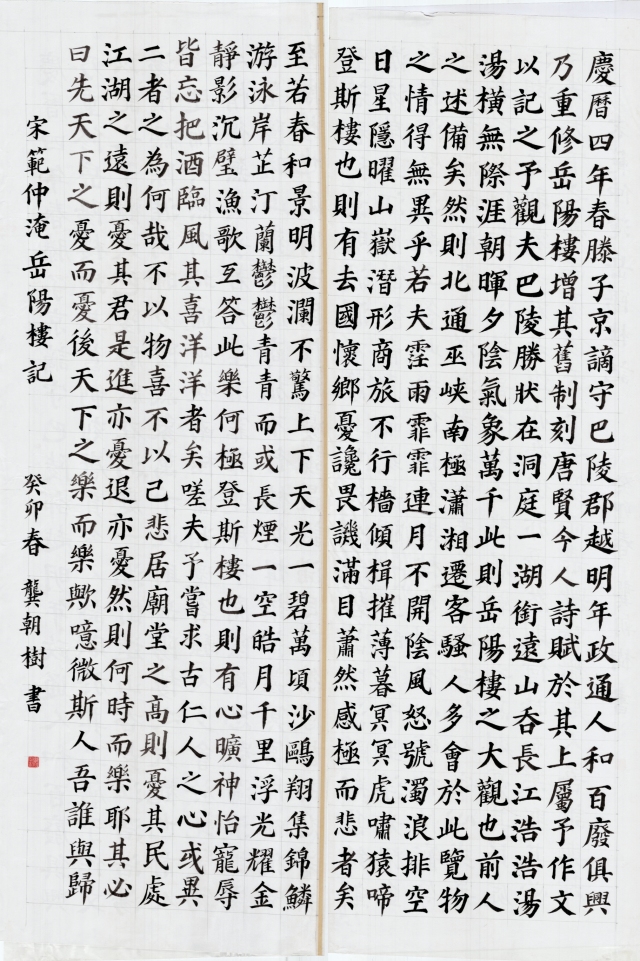 慶曆四年春滕子京謫守巴陵郡越明年政通人和百廢俱興
乃重修岳陽樓增其舊制刻唐賢今人詩賦於其上屬予作文
以記之予觀夫巴陵勝狀在洞庭一湖銜遠山吞長江浩浩湯
湯橫無際涯朝暉夕陰氣象萬千此則岳陽樓之大觀也前人
之述備矣然則北通巫峽南極瀟湘遷客騷人多會於此覽物
之情得無異乎若夫霪雨霏霏連月不開陰風怒號濁浪排空
日星隱曜山嶽潛形商旅不行檣傾楫摧薄暮冥冥虎嘯猿啼
登斯樓也則有去國懷鄉憂讒畏譏滿目蕭然感極而悲者矣
至若春和景明波瀾不驚上下天光一碧萬頃沙鷗翔集錦鱗
游泳岸芷汀蘭鬱鬱青青而或長煙一空皓月千里浮光耀金
靜影沉璧漁歌互答此樂何極登斯樓也則有心曠神怡寵辱
皆忘把酒臨風其喜洋洋者矣嗟夫予嘗求古仁人之心或異
二者之為何哉不以物喜不以己悲居廟堂之高則憂其民處
江湖之遠則憂其君是進亦憂退亦憂然則何時而樂耶其必
曰先天下之憂而憂後天下之樂而樂歟噫微斯人吾誰與歸
宋範仲淹岳陽樓記 癸卯春龔朝樹書